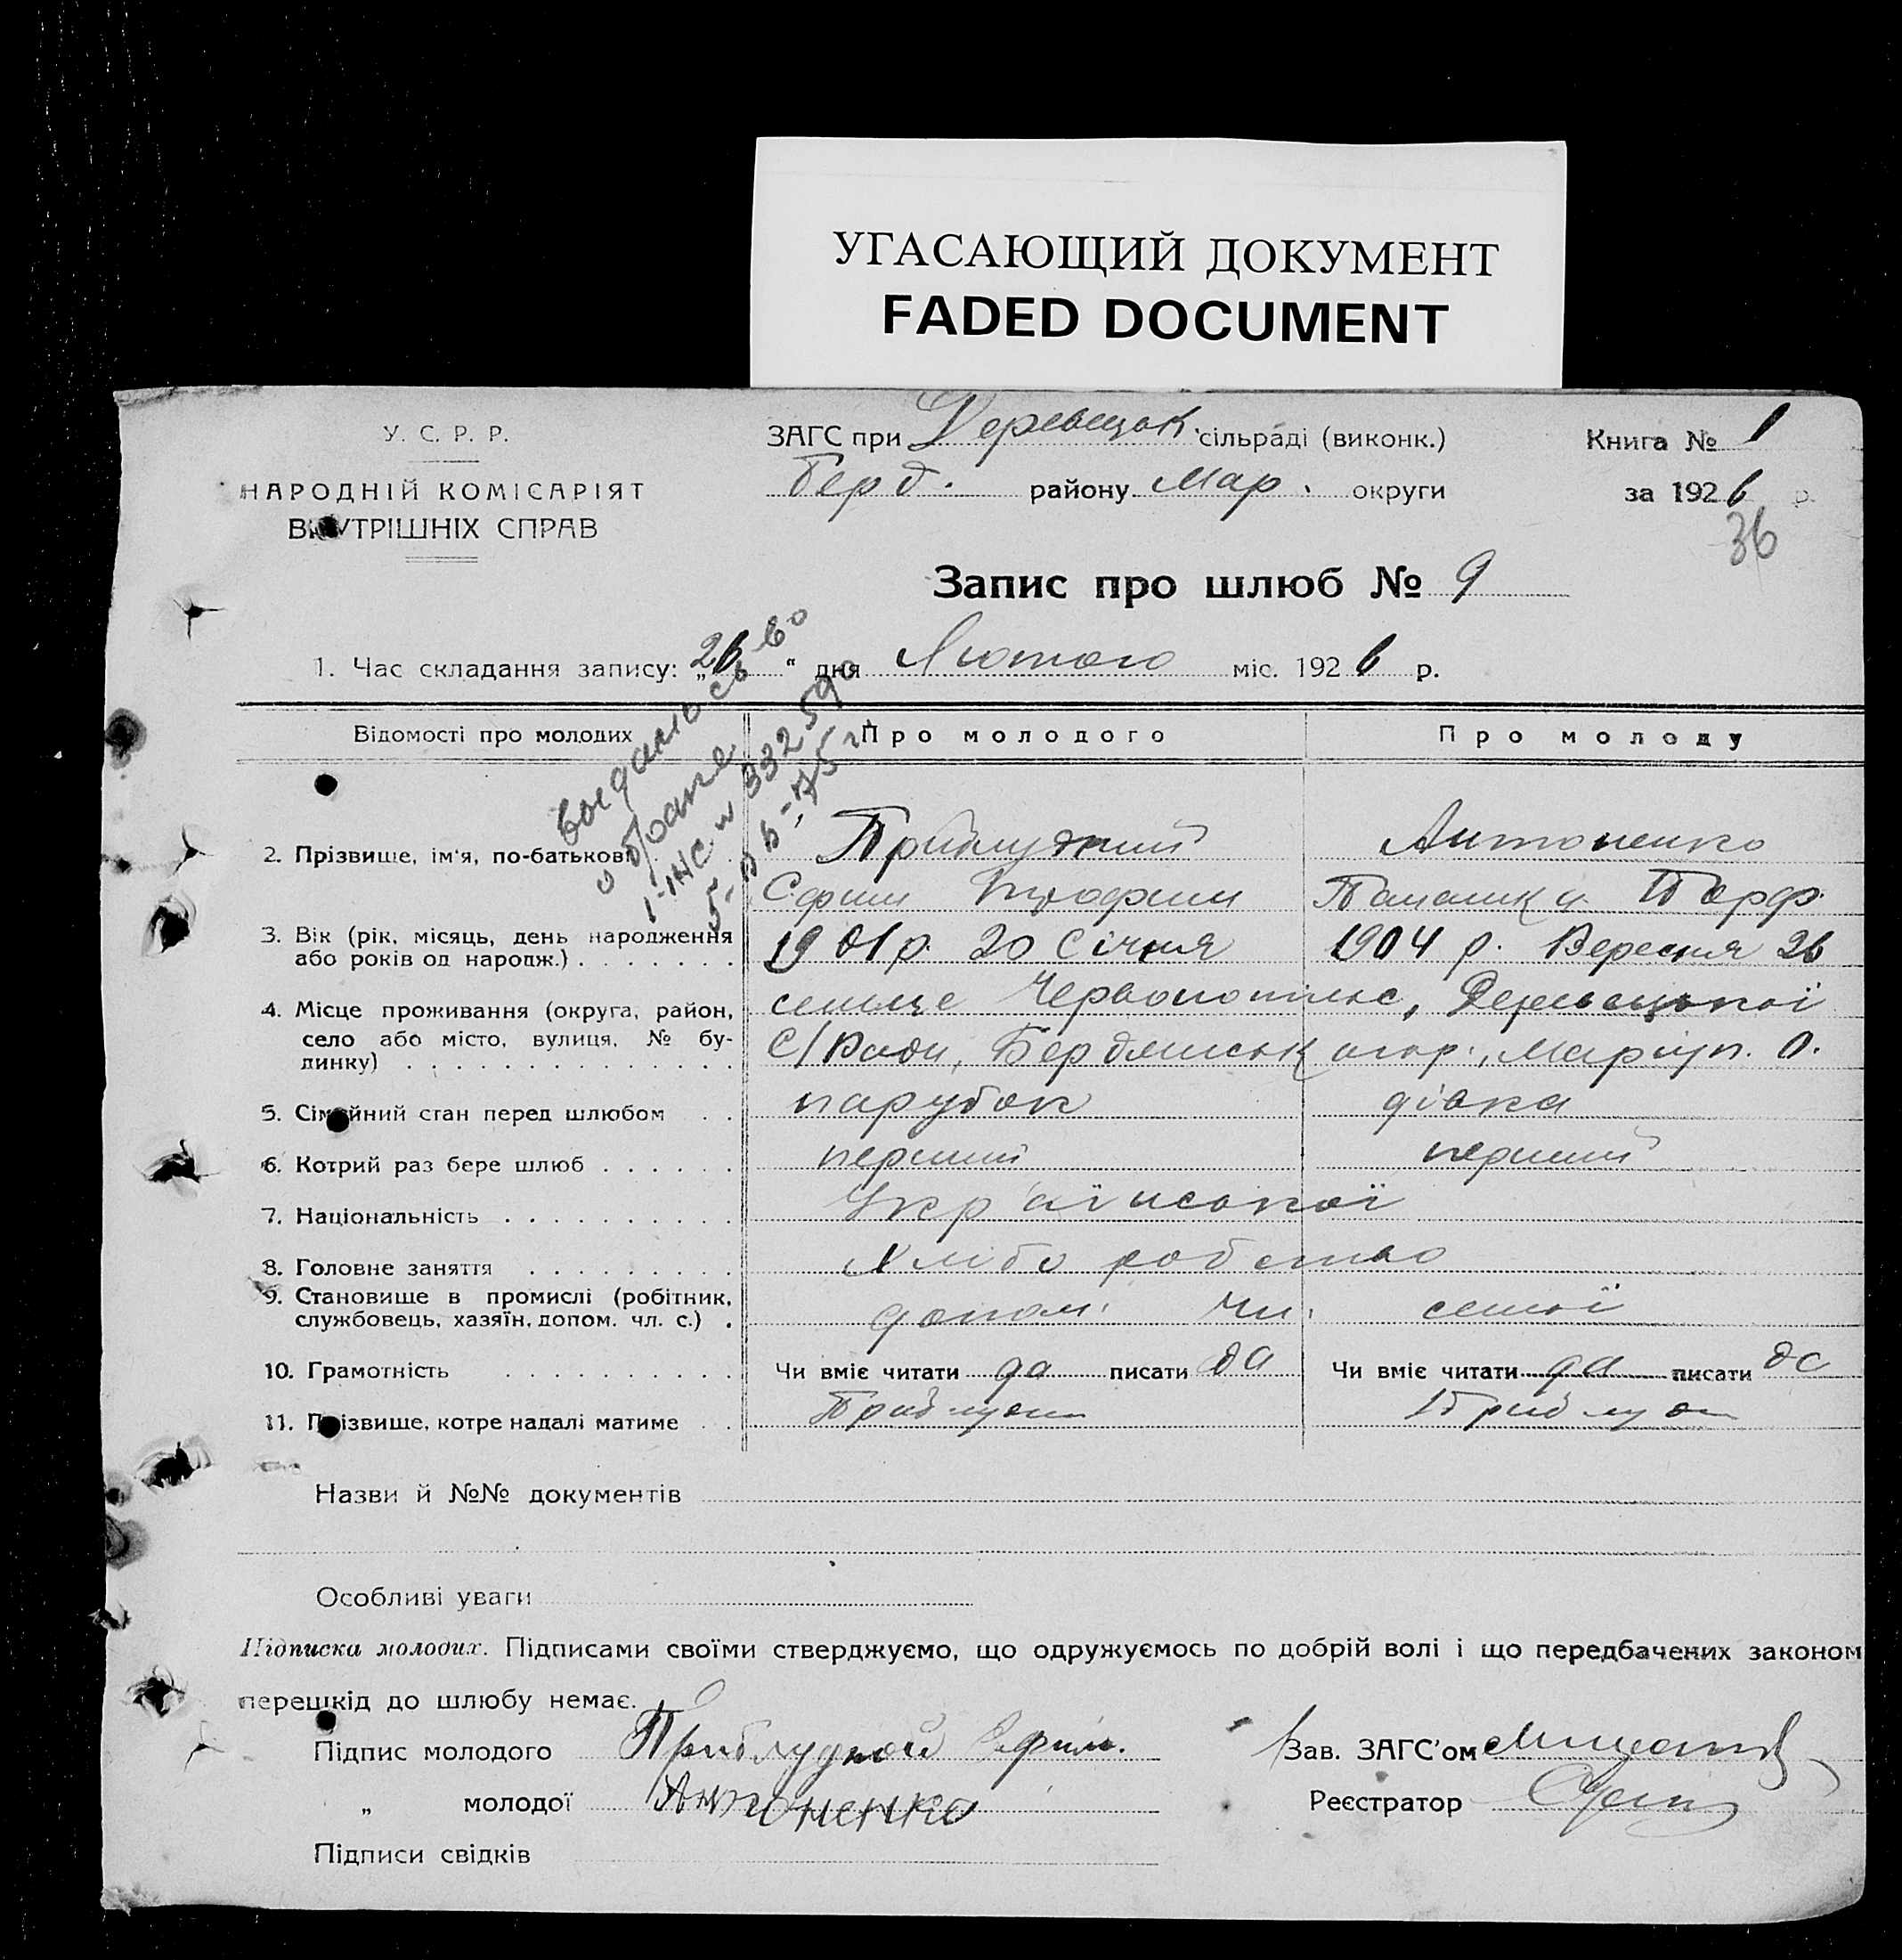 УГАСАЮЩИЙ ДОКУМЕНТ
FADED DOCUMENT
У. С. Р. Р.
НАРОДНІЙ КОМІСАРІЯТ
ВНУТРІШНІХ СПРАВ
ЗАГС при Деревецьк. сільраді (виконк.)
Берд. району Мар. округи
Книга № 1
за 1926 р.
36
Запис про шлюб № 9
1. Час складання запису: „26“ дня Лютого міс. 1926 р.
выдано св во
о браке
Відомості про молодих
Про молодого
Про молоду
2. Прізвище, ім'я, по-батькові
Приблудний
Єфим
Антоненко
3. Вік (рік, місяць, день народження
або років од народж.)
1901 р. 20 Січня
1904 р. Вересня 26
4. Місце проживання (округа, район,
село або місто, вулиця, № бу-
динку)
селище Червонопілля, Деревецької
С/Ради, Бердянськ Маріуп. О.
5. Сімейний стан перед шлюбом
парубок
дівка
6. Котрий раз бере шлюб
перший
перший
7. Національність
Української
8. Головне заняття
Хліборобство
9. Становище в промислі (робітник,
службовець, хазяїн, допом. чл. с.)
допом. чл. семьї
10. Грамотність
Чи вміє читати да писати да
Чи вміє читати да писати да
11. Прізвище, котре надалі матиме
Назви й №№ документів
Особливі уваги
Підписка молодих. Підписами своїми стверджуємо, що одружуємось по добрій волі і що передбачених законом
перешкід до шлюбу немає.
Підпис молодого Приблудной Ефим.
Зав. ЗАГС'ом
„ молодої Антоненко
Реєстратор
Підписи свідків